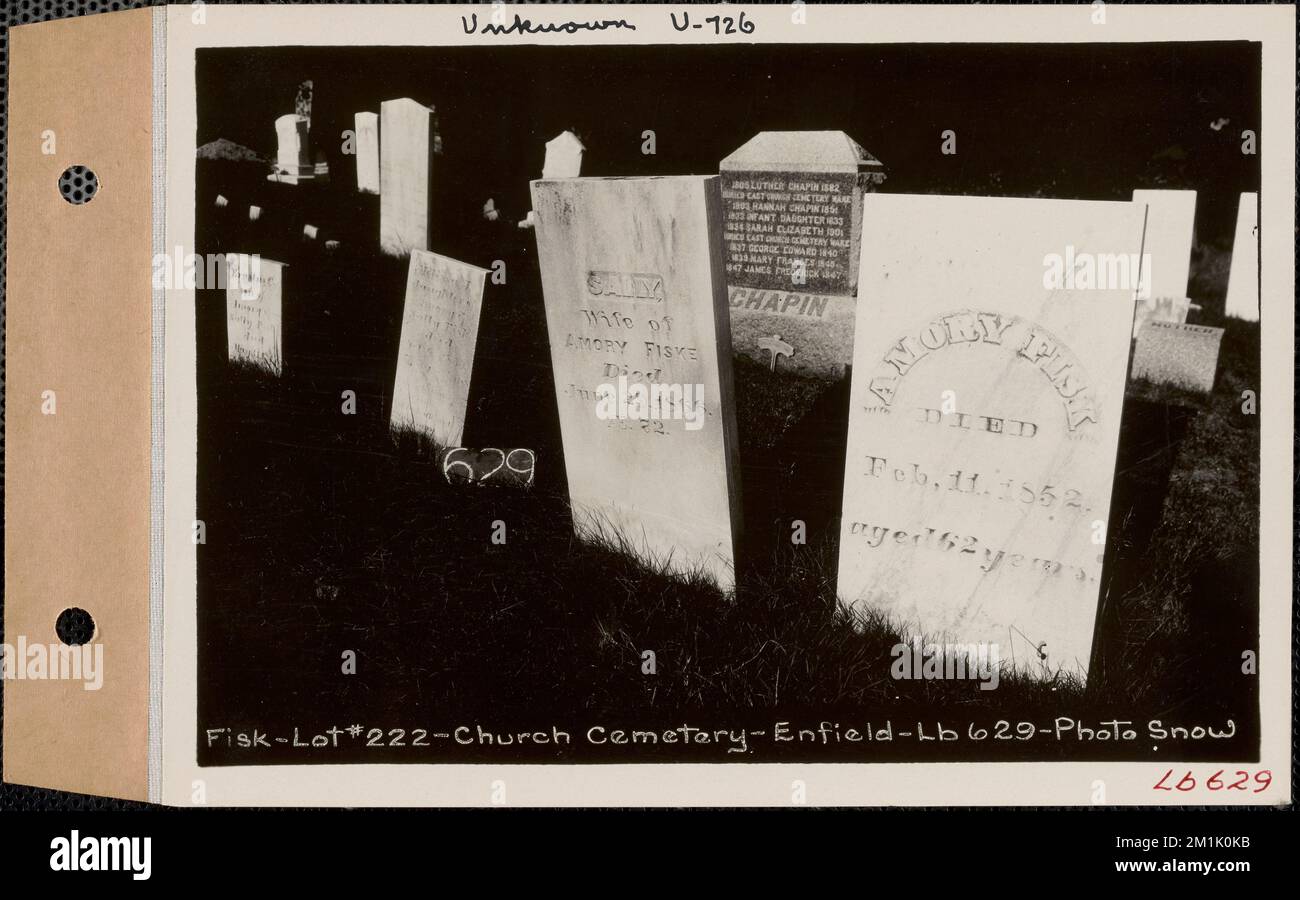 Unknown U-726
1805 LUTHER CHAPIN 1882
BURIED EAST CHURCH CEMETERY WARE
1803 HANNAH CHAPIN 1851
1833 INFANT DAUGHTER 1833
1834 SARAH ELIZABETH 1901
BURIED EAST CHURCH CEMETERY WARE
1837 GEORGE EDWARD 1840
1839 MARY FRANCES 1845
1847 JAMES FREDERICK 1847
CHAPIN
SALLY,
Wife of
AMORY FISKE
Died
June
AMORY FISK
DIED
Feb. 11. 1852.
aged 62 years.
MOTHER
629
Fisk-Lot #222-Church Cemetery-Enfield-Lb 629-Photo Snow
Lb 629
alamy
Image ID: 2M1K0KB
www.alamy.com